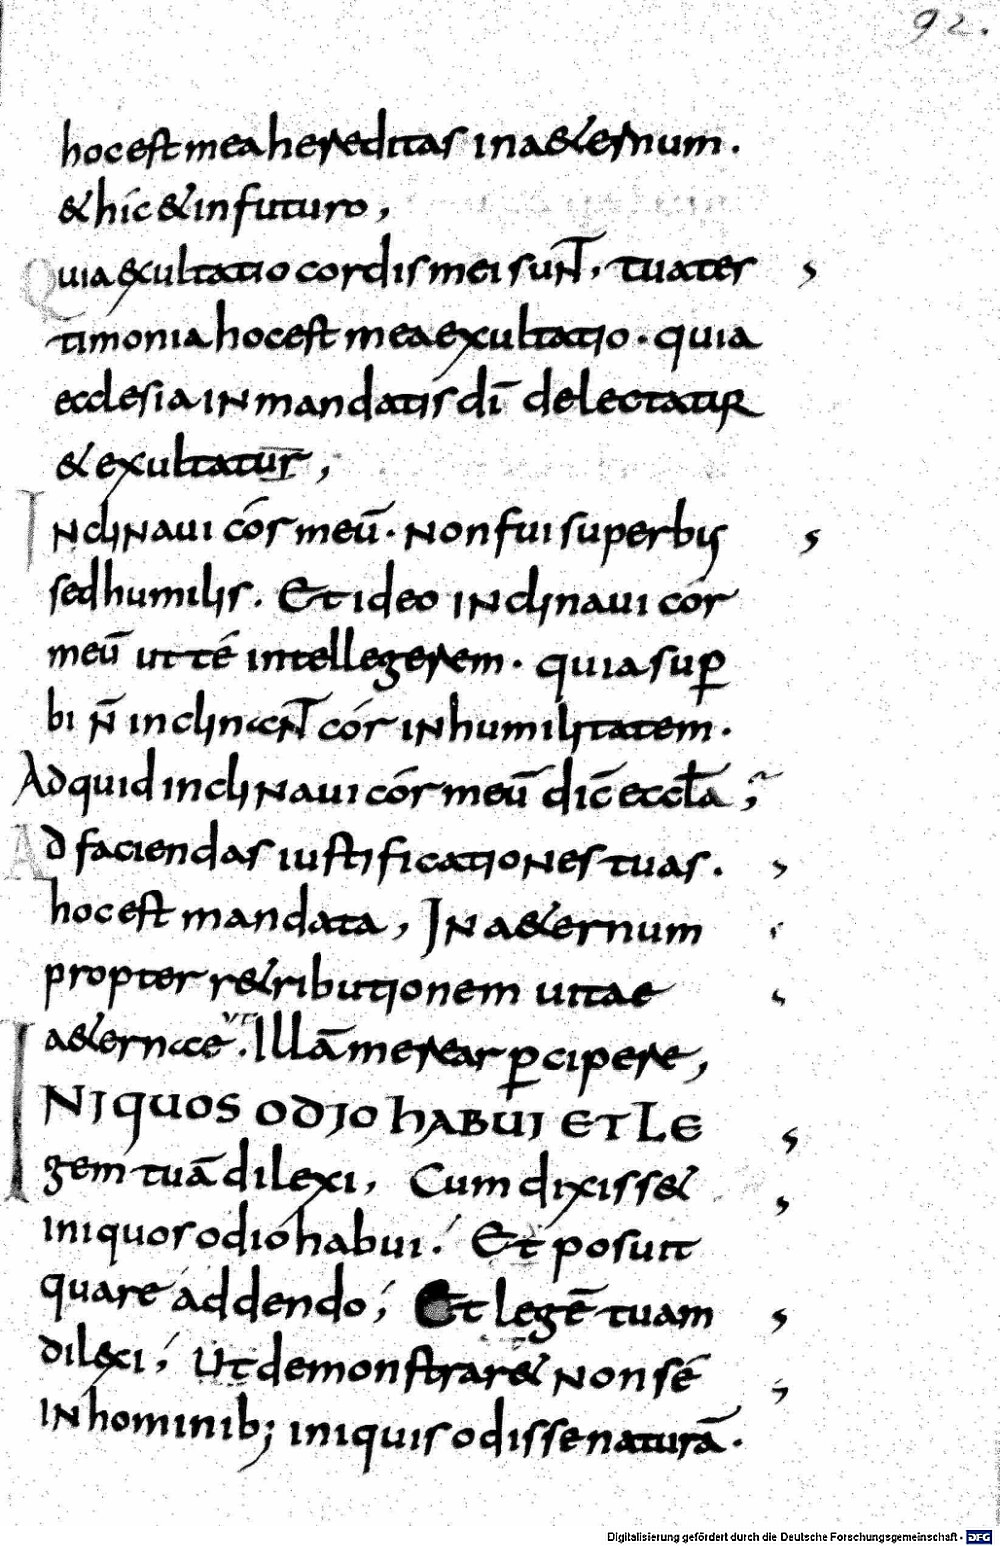 92.
hoc est mea hereditas in a&ernum.
& hic & in futuro,
Quia excultatio cordis mei sun̄t, tua tes
timonia hoc est mea excultatio. quia
ecclesia in mandatis dī delectatur
& exultatur,
Inclinaui cór meū. non fui superbis
sed humilis. Et ideo inclinaui cór
meū ut té intellegerem. quia sup̄
bi n̄ inclinan̄t cór in humilitatem.
Ad quid inclinaui cór meū dic̄ eccła,
Ad faciendas iustificationes tuas.
hoc est mandata, In a&ernum
propter r&ributionem uitae
a&ernae. Illā merear p̄cipere,
INIQUOS ODIO HABUI ET LE
gem tuā dilexi, Cum dixiss&
iniquos odio habui. Et posuit
quare addendo; Et legē tuam
dilexi; Ut demonstrar& non sé
in hominib; iniquis odisse naturā.
Digitalisierung gefördert durch die Deutsche Forschungsgemeinschaft - DFG